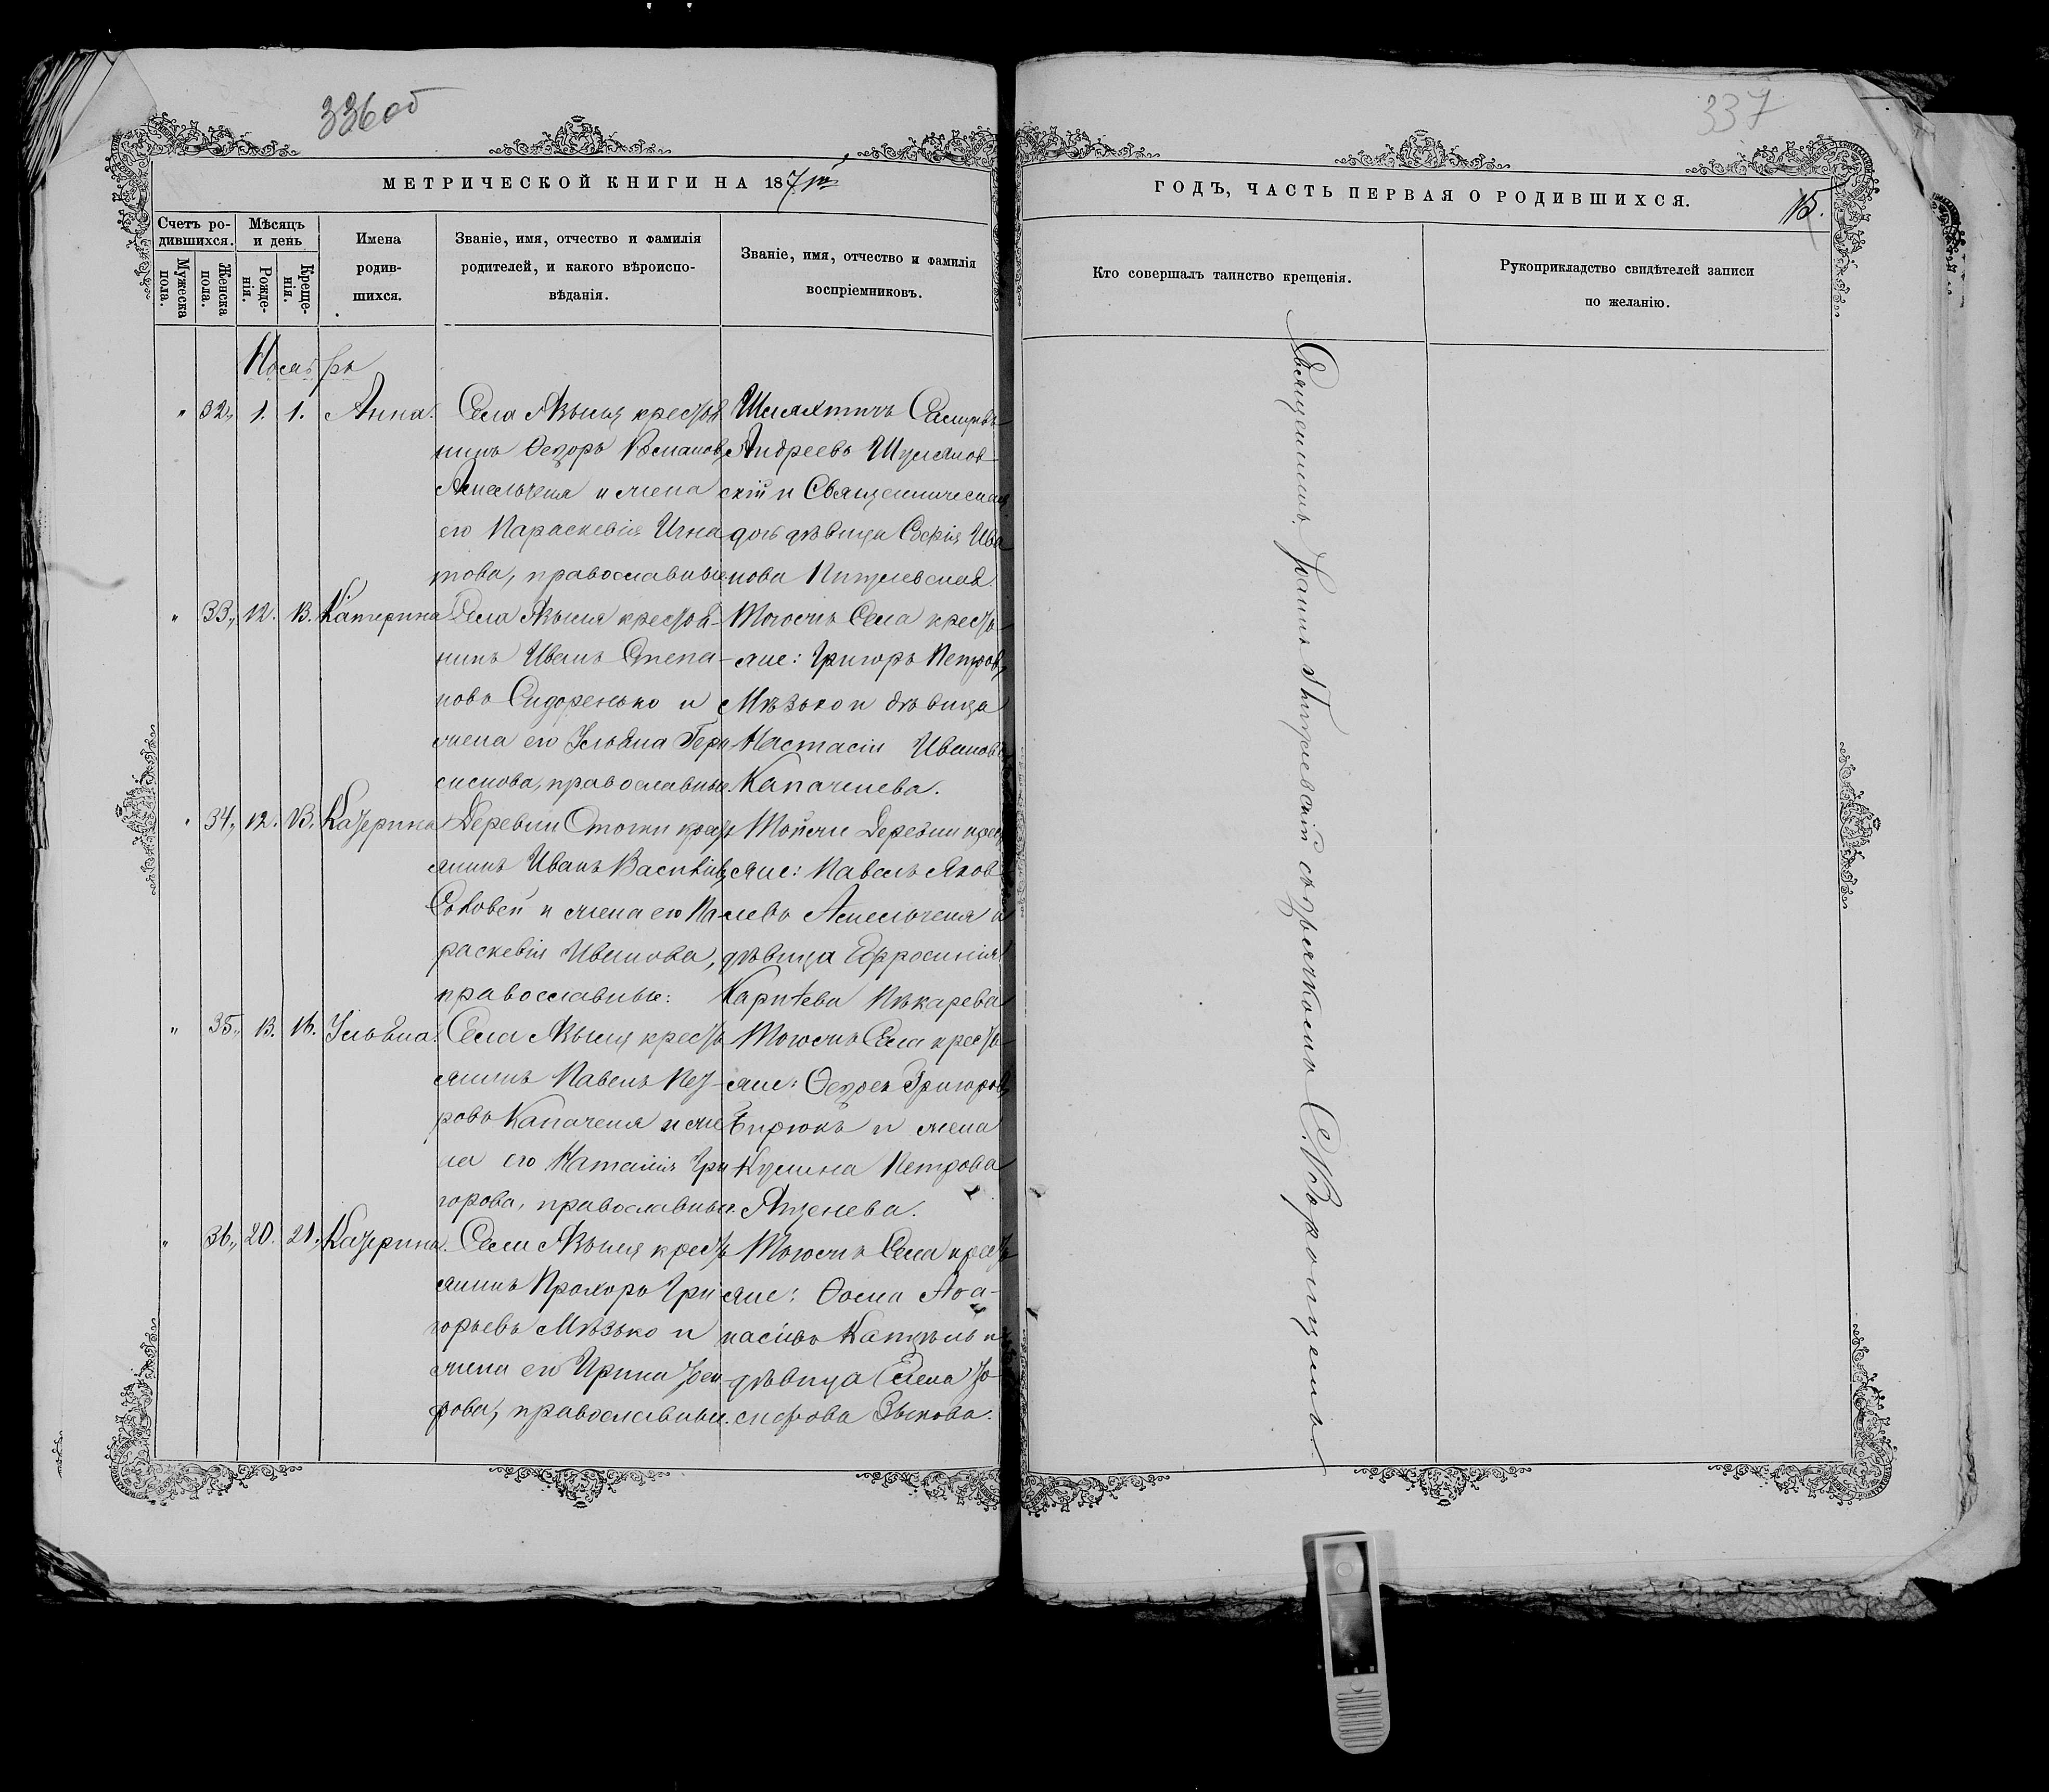 336 об
МЕТРИЧЕСКОЙ КНИГИ НА 187
Счетъ ро-
дившихся.
Мужеска
пола.
Женска
пола.
Мѣсяцъ
и день
Рожде-
нія.
Креще-
нія.
Имена
родив-
шихся.
Званіе, имя, отчество и фамилія
родителей, и какого вѣроиспо-
вѣданія.
Званіе, имя, отчество и фамилія
воспріемниковъ.
Ноябрь
" 32, 1. 1. Анна.
Села Языля крестья
нинъ Ѳедоръ Романовъ
Амельченя и жена
его Параскевія Игна
това, православные
Шляхтичъ
Андреевъ
скій и Священническая
дочь дѣвица Софія Ива
нова
" 33, 12. 13. Катерина
Села Языля крестья-
нинъ Иванъ Степа-
новъ Сидоренько и
жена его Ульяна Гера
симова, православные.
Тогожъ Села кресть
яне: Григоръ Петровъ
Мѣзько и дѣвица
Настасія Иванова
Капаченева.
" 34, 12. 13. Катерина
Деревни кресть
янинъ Иванъ Васильевъ
и жена его Па-
раскевія Иванова,
православные:
Тойжи Деревни крест
яне: Павелъ Яков
левъ Амельченя и
дѣвица Ефросинія
Пѣкарева
" 35, 13. 16. Ульяна.
Села Языля кресть
янинъ Павелъ Пет-
ровъ Капаченя и же
на его Наталія Гри
горова, православные.
Тогожъ Села кресть-
яне: Ѳедоръ Григоровъ
Бирюкъ и жена
Кулина Петрова
Яценева.
" 36, 20. 21. Катерина.
Села Языля кресть
янинъ Прохоръ Гри
горьевъ Мѣзько и
жена его Ирина
рова, православные.
Тогожъ Села кресть
яне: Ѳома Аѳа-
насіевъ и
дѣвица Елена
Зыкова.
337
ГОДЪ, ЧАСТЬ ПЕРВАЯ О РОДИВШИХСЯ.
15.
Кто совершалъ таинство крещенія.
Рукоприкладство свидѣтелей записи
по желанію.
Священникъ Іоаннъ съ дьячкомъ